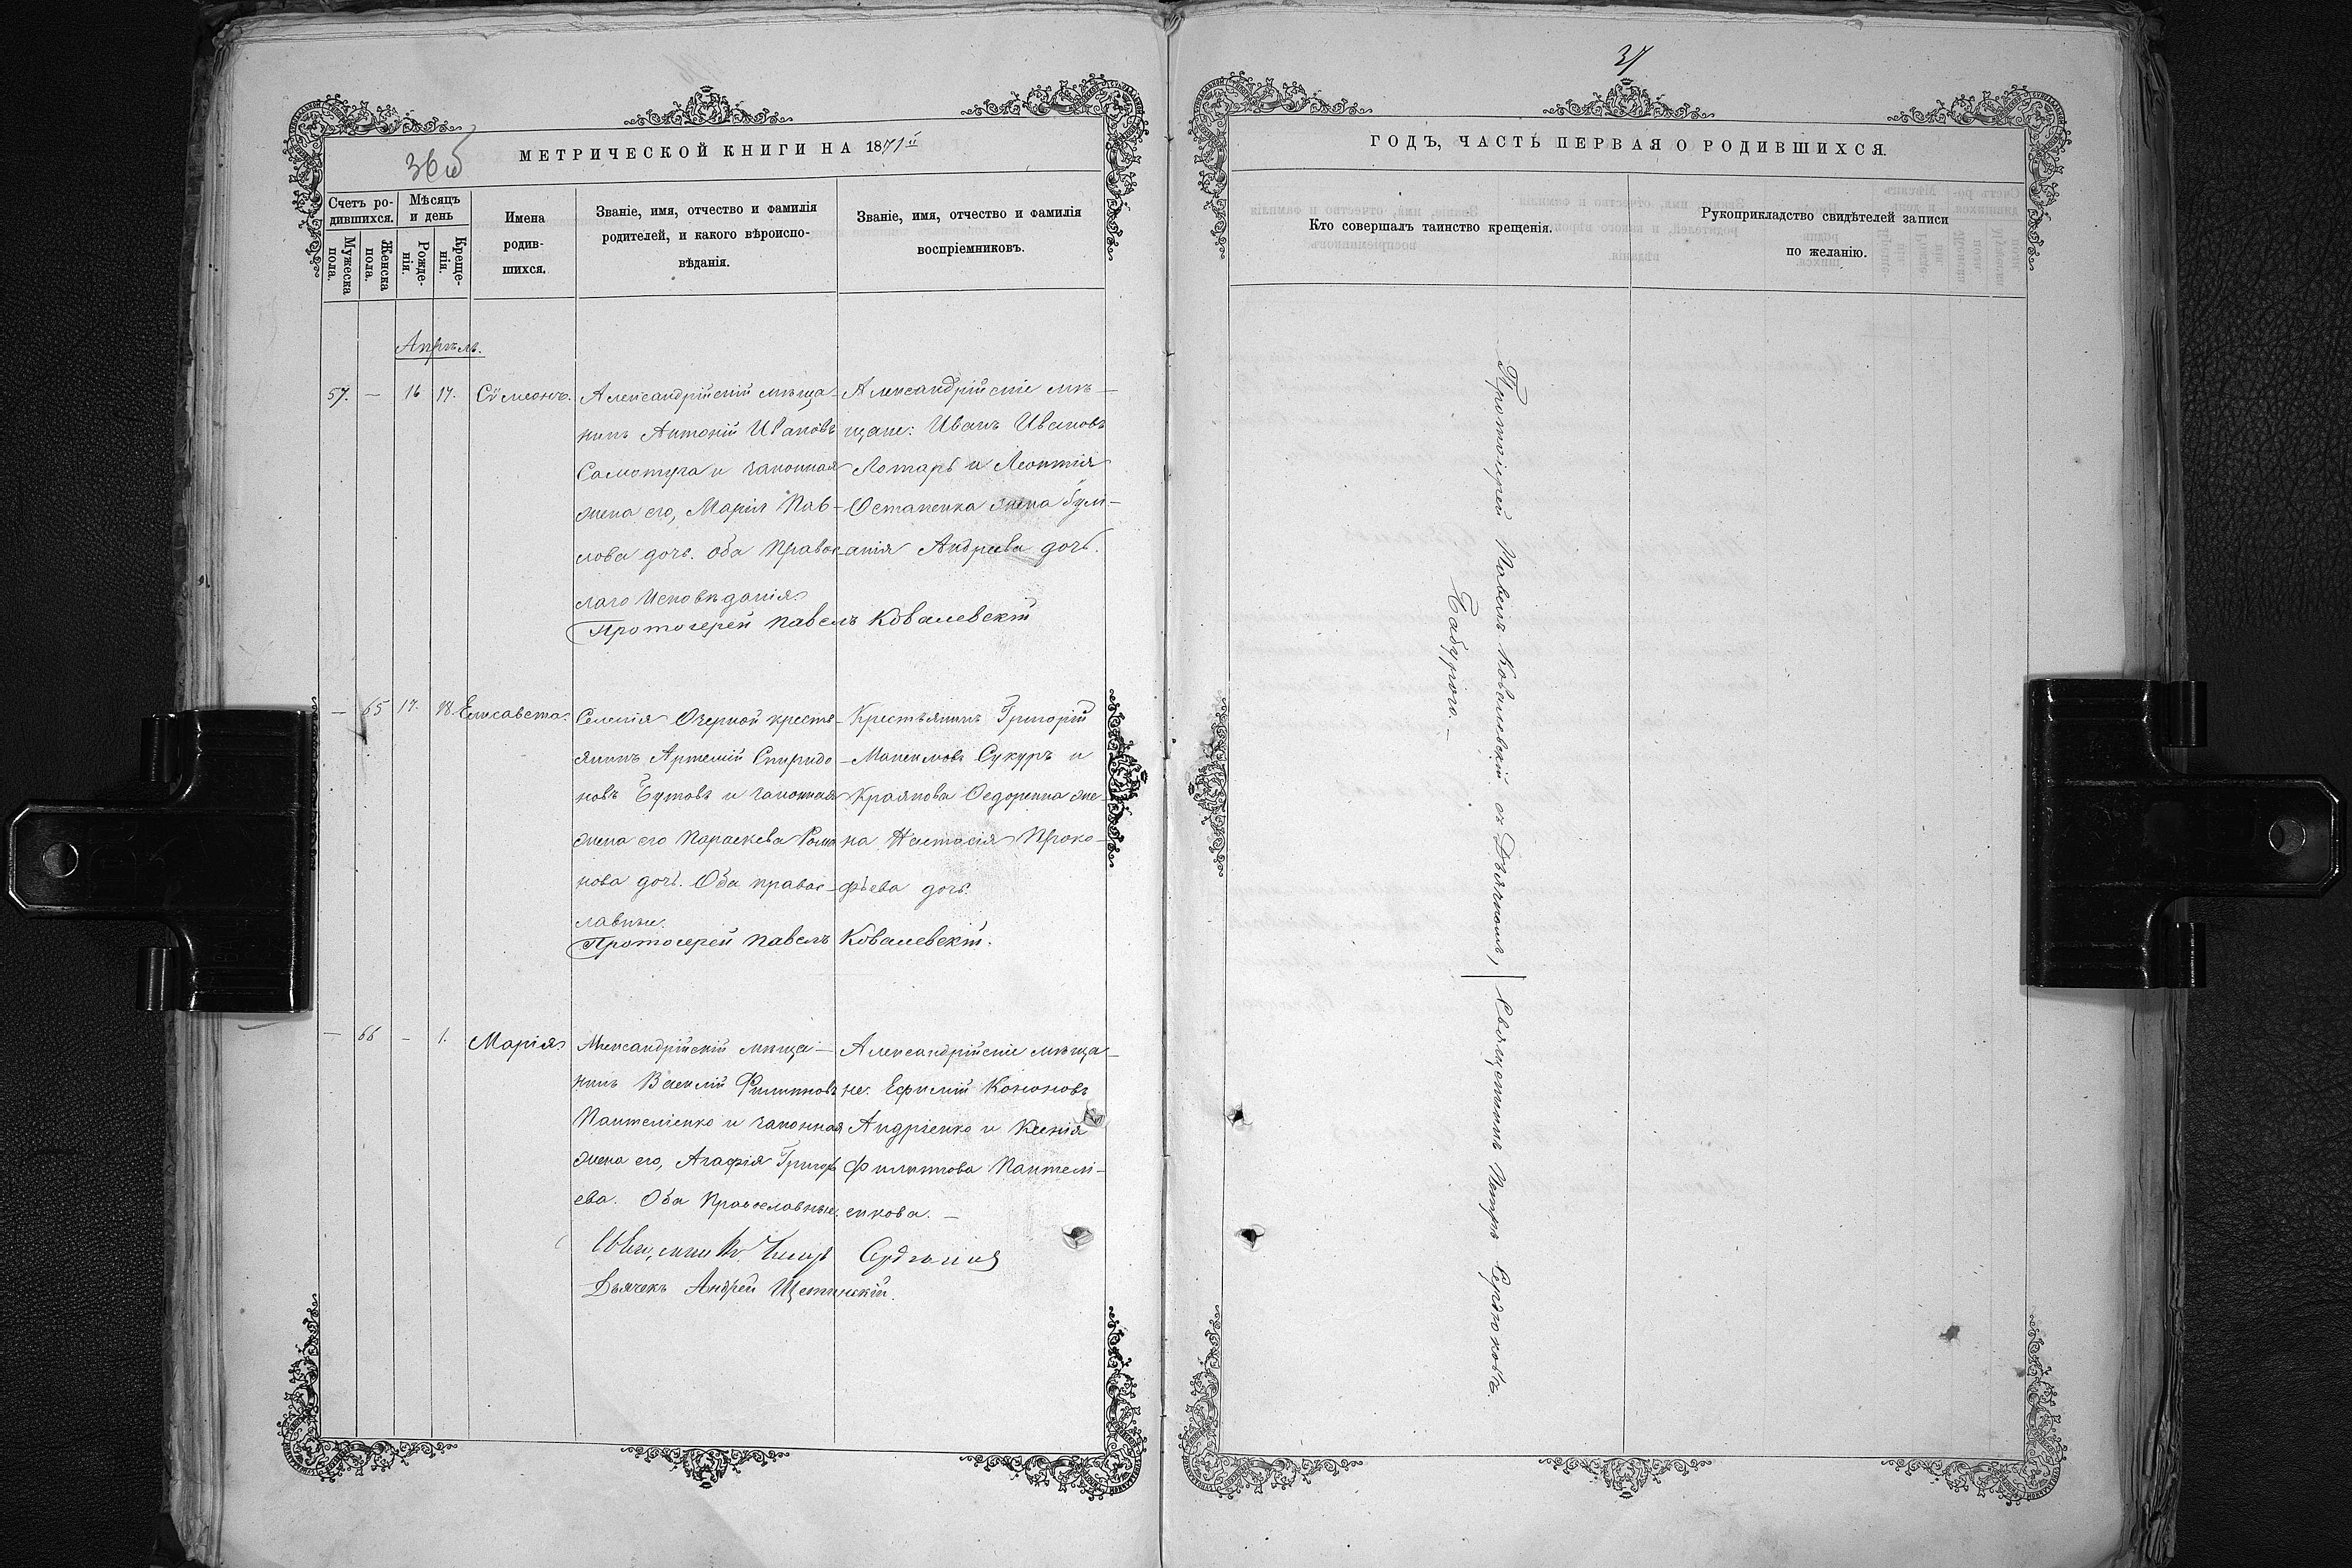 36 об
МЕТРИЧЕСКОЙ КНИГИ НА 1871й
Счетъ ро-
дившихся.
Мужеска
пола.
Женска
пола.
Мѣсяцъ
и день
Рожде-
нія.
Креще-
нія.
Имена
родив-
шихся.
Званіе, имя, отчество и фамилія
родителей, и какого вѣроиспо-
вѣданія.
Званіе, имя, отчество и фамилія
воспріемниковъ.
Апрѣль.
57. — 16 17. Сѵмеонъ.
Александрійскій мѣща-
нинъ Антоній Ивановъ
Самотуга и законная
жена его, Марія Пав-
лова дочь. Оба Правос
лаго Исповѣданія.
Александрійскіе мѣ-
щане: Иванъ Ивановъ
Лотарь и Леонтія
Остапенка жена
Андреева дочь.
Протоіерей Павелъ Ковалевскій
— 65 17. 18. Елисавета.
Селенія Озерной кресть-
янинъ Артемій Спиридо
новъ Бутовъ и законная
жена его Параскева Рома
нова дочь. Оба правос-
лавные.
Крестьянинъ Григорій
Максимовъ Сукуръ и
Ѳедоренка же-
на Настасія Проко-
фьева дочь.
Протоіерей Павелъ Ковалевскій.
— 66 - 1. Марія.
Александрійскій мѣща-
нинъ Василій Филипповъ
Пантеліенко и законная
жена его, Агафія Григорь
ева. Оба Православные.
Александрійскіе мѣща-
не: Ефимій Кононовъ
Андріенко и Ксенія
Филиппова Пантелі-
енкова. —
Дьячекъ Андрей Щетинскій.
37
ГОДЪ, ЧАСТЬ ПЕРВАЯ О РОДИВШИХСЯ.
Кто совершалъ таинство крещенія.
Рукоприкладство свидѣтелей записи
по желанію.
Протоіерей Павелъ Ковалевскій съ Дьячкомъ,
Священникъ Петръ Сердюковъ.